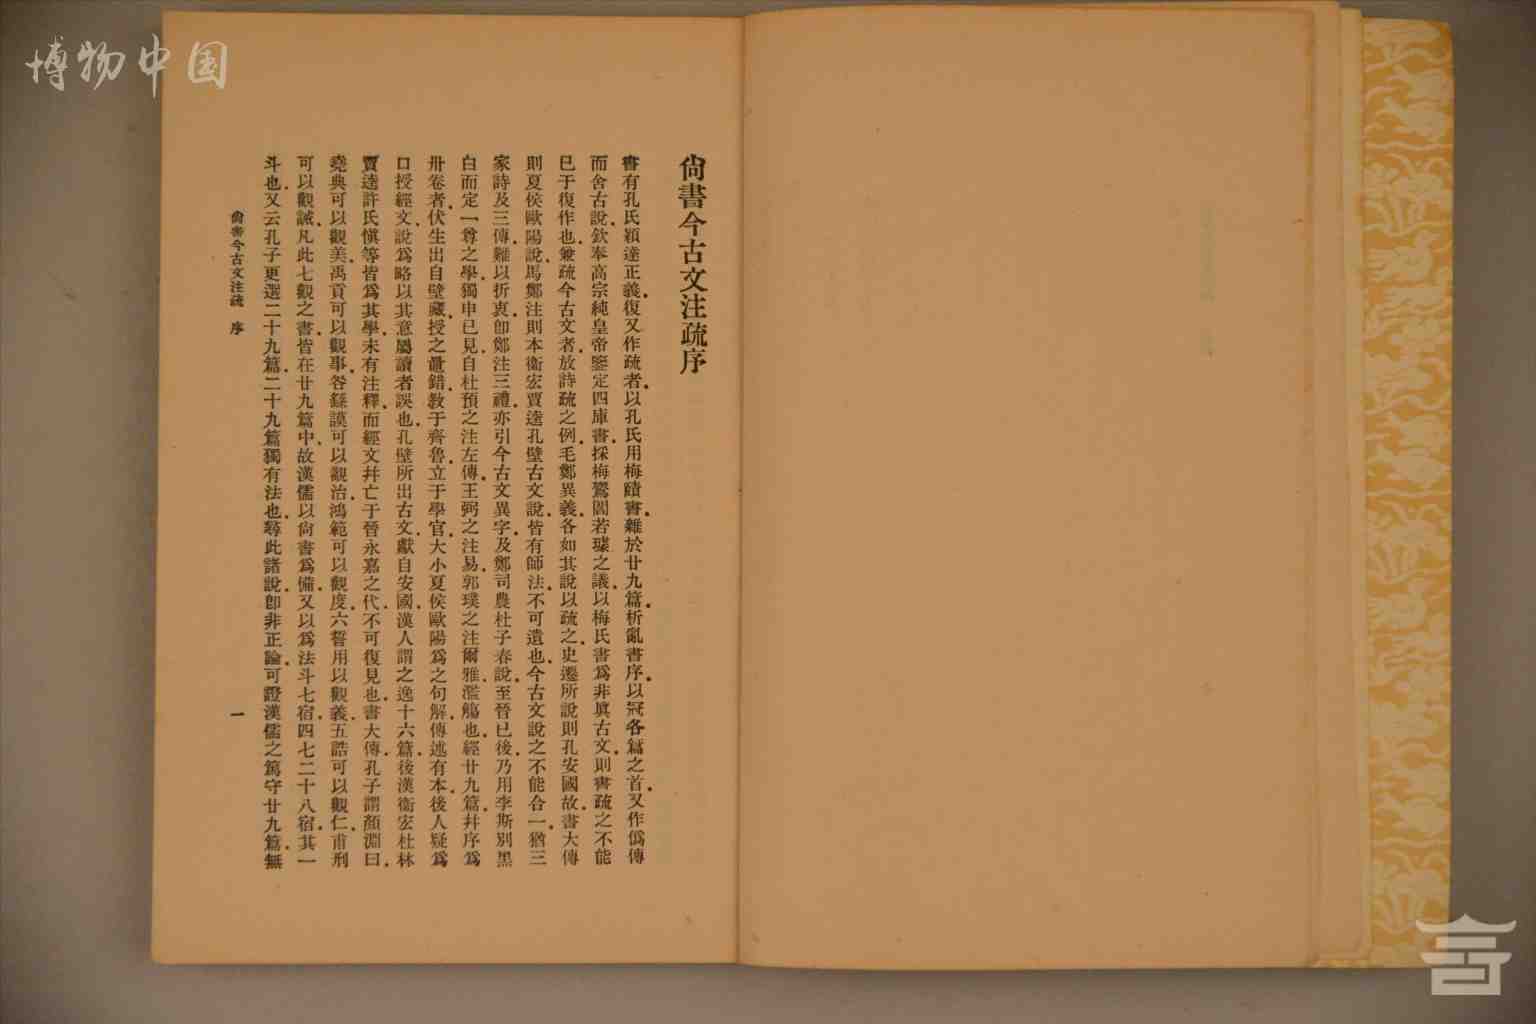 博物中国
尙書今古文注疏序
書有孔氏穎達正義.復又作疏者.以孔氏用梅賾書.雜於廿九篇.析亂書序.以冠各篇之首.又作僞傳
而舍古說.欽奉高宗純皇帝鑒定四庫書.採梅鷟閻若璩之議.以梅氏書爲非眞古文.則書疏之不能
已于復作也.兼疏今古文者.放詩疏之例.毛鄭異義.各如其說以疏之.史遷所說則孔安國故.書大傳
則夏侯歐陽說.馬鄭注則本衞宏賈逵孔壁古文說.皆有師法.不可遺也.今古文說之不能合一.猶三
家詩及三傳.難以折衷.卽鄭注三禮.亦引今古文異字.及鄭司農杜子春說.至晉已後.乃用李斯別黑
白而定一尊之學.獨申己見.自杜預之注左傳.王弼之注易.郭璞之注爾雅.濫觴也.經廿九篇.幷序爲
卅卷者.伏生出自壁藏.授之鼂錯.敎于齊魯.立于學官.大小夏侯歐陽爲之句解.傳述有本.後人疑爲
口授經文.說爲略以其意屬讀者誤也.孔壁所出古文.獻自安國.漢人謂之逸十六篇.後漢衞宏杜林
賈逵許氏愼等皆爲其學.未有注釋.而經文幷亡于晉永嘉之代.不可復見也.書大傳.孔子謂顏淵曰.
堯典可以觀美.禹貢可以觀事.咎繇謨可以觀治.鴻範可以觀度.六誓用以觀義.五誥可以觀仁.甫刑
可以觀誡.凡此七觀之書.皆在廿九篇中.故漢儒以尙書爲備.又以爲法斗七宿.四七二十八宿.其一
斗也.又云孔子更選二十九篇.二十九篇獨有法也.尋此諸說.卽非正論.可證漢儒之篤守廿九篇.無
尙書今古文注疏 序
一